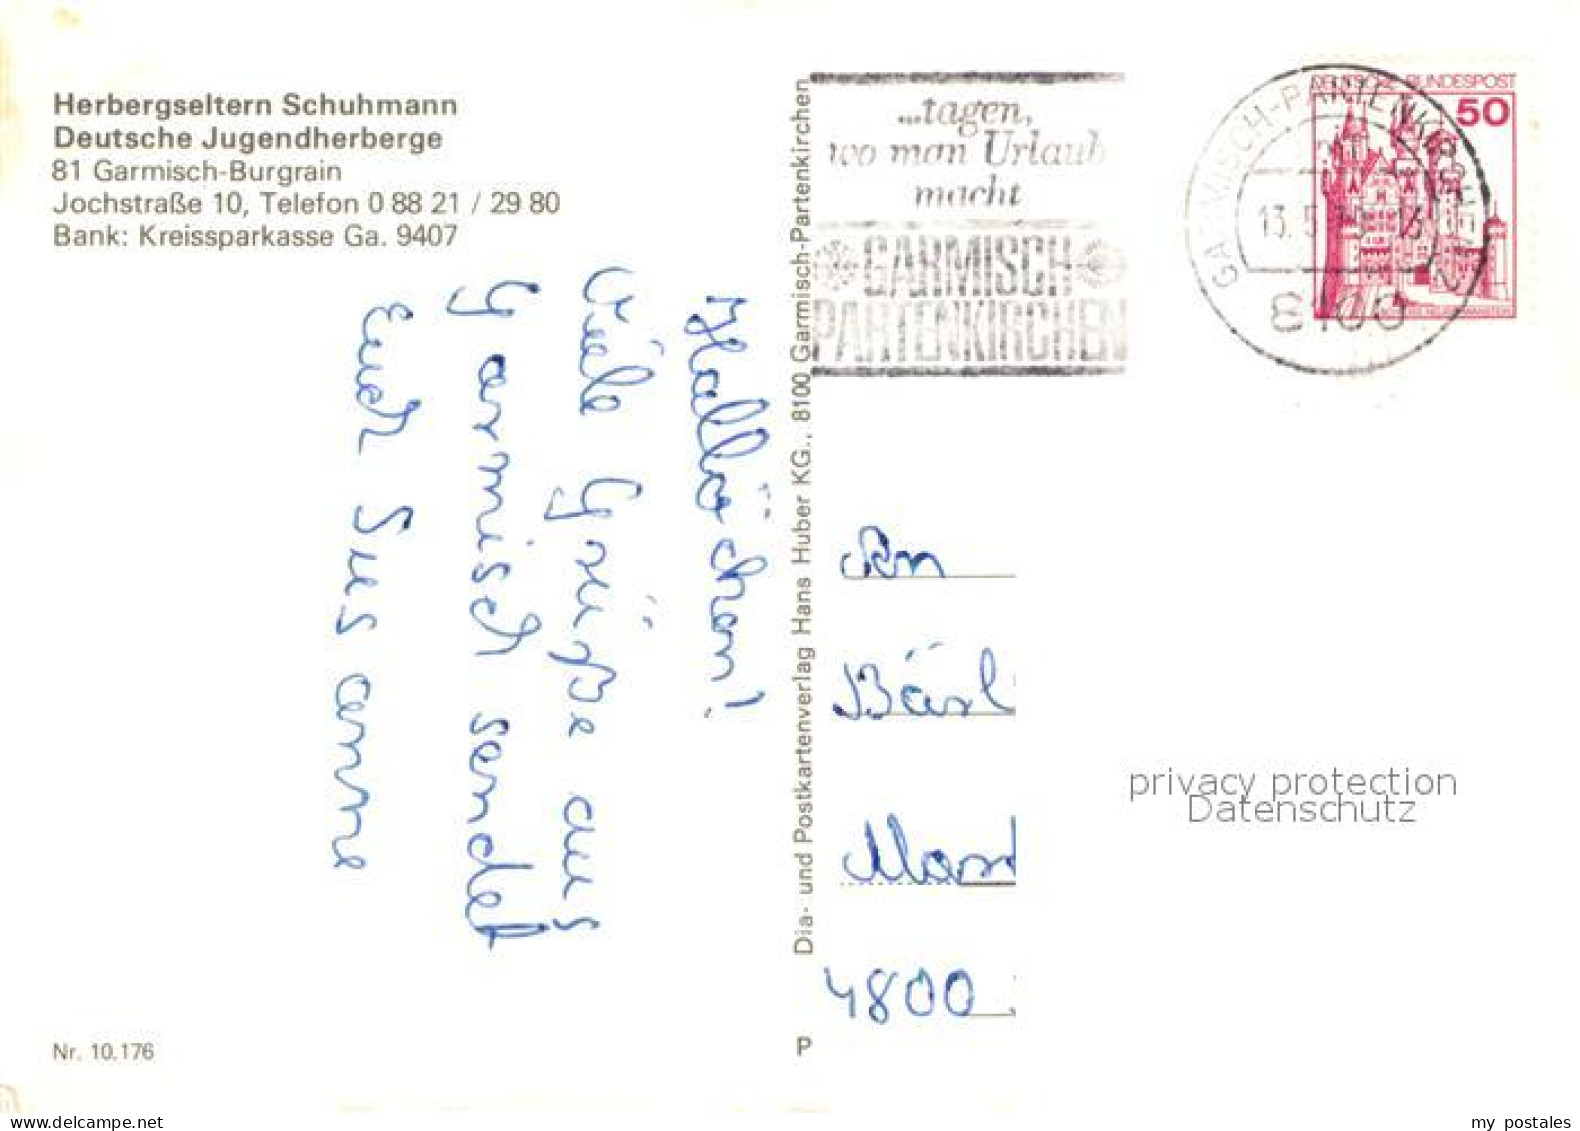 Herbergseltern Schuhmann
Deutsche Jugendherberge
81 Garmisch-Burgrain
Jochstraße 10, Telefon 0 88 21 / 29 80
Bank: Kreissparkasse Ga. 9407
Hallöchen!
Viele Grüße aus
Garmisch sendet
Euch Susanne
Nr. 10.176
Dia- und Postkartenverlag Hans Huber KG., 8100 Garmisch-Partenkirchen
P
...tagen,
wo man Urlaub
macht
GARMISCH
PARTENKIRCHEN
GARMISCH-PARTENKIRCHEN
13.5.
8100
DEUTSCHE BUNDESPOST
50
An
Bäsl
4800
privacy protection
Datenschutz
my postales